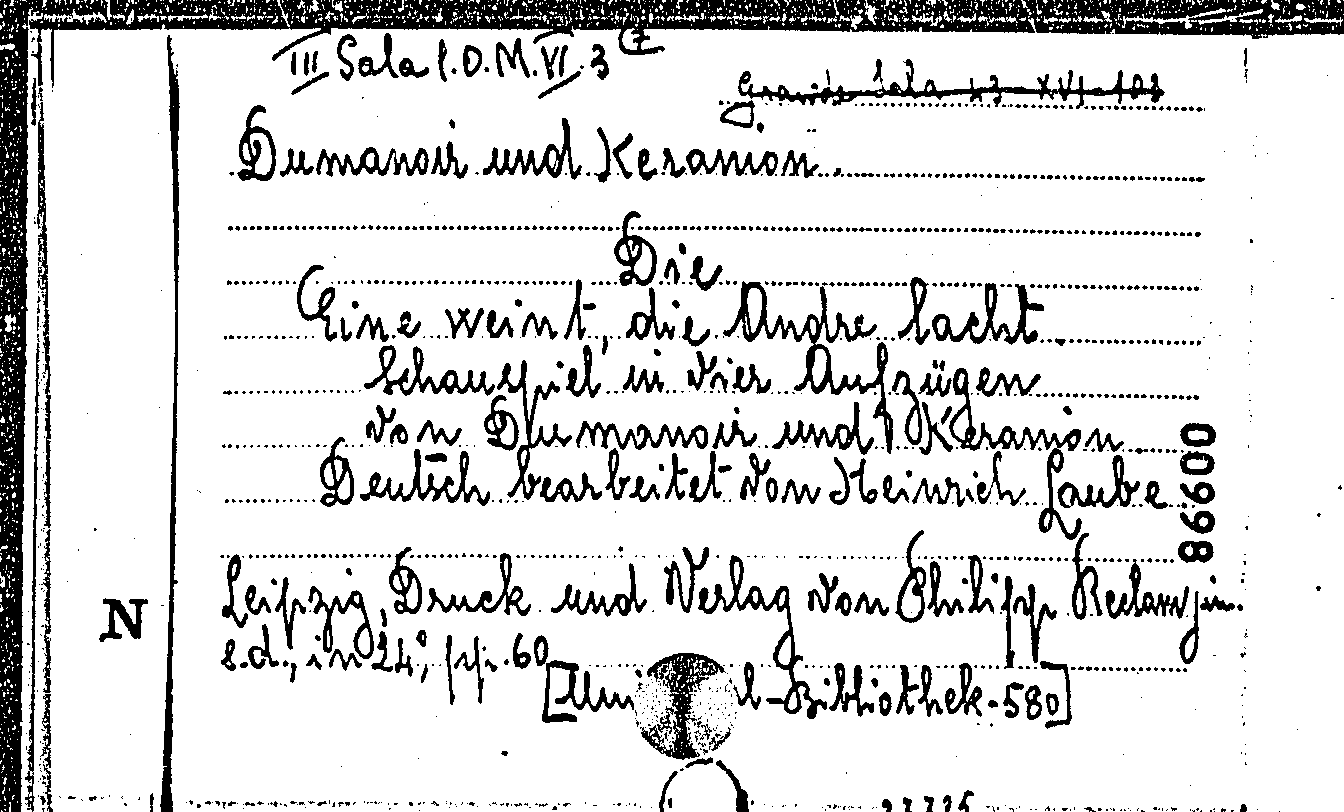 III Sala l.O.M.VI.3
Grande Sala 23-XVI-102
Dumanoir und Keranion.
Die
Eine weint, die Andre lacht.
Schauspiel in vier Aufzügen
von Dumanoir und Keranion.
Deutsch bearbeitet von Heinrich Laube.
00998
Leipzig, Druck und Verlag von Philipp Reclam jun.
N
s.d., in 24°, pp. 60
[Uni l-Bibliothek-580]